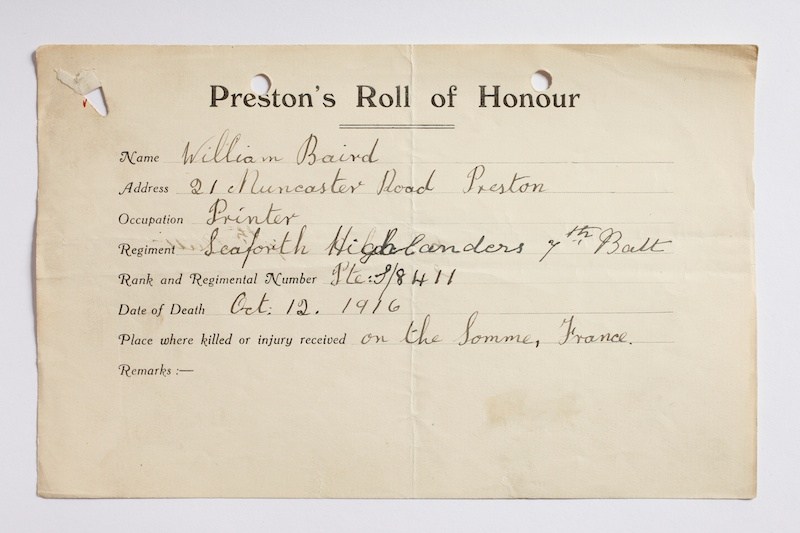 Preston's Roll of Honour
Name William Baird
Address 21 Muncaster Road Preston
Occupation Printer
Regiment Seaforth Highlanders 7th Batt
Rank and Regimental Number Pte: S/8411
Date of Death Oct. 12. 1916
Place where killed or injury received on the Somme, France.
Remarks :—